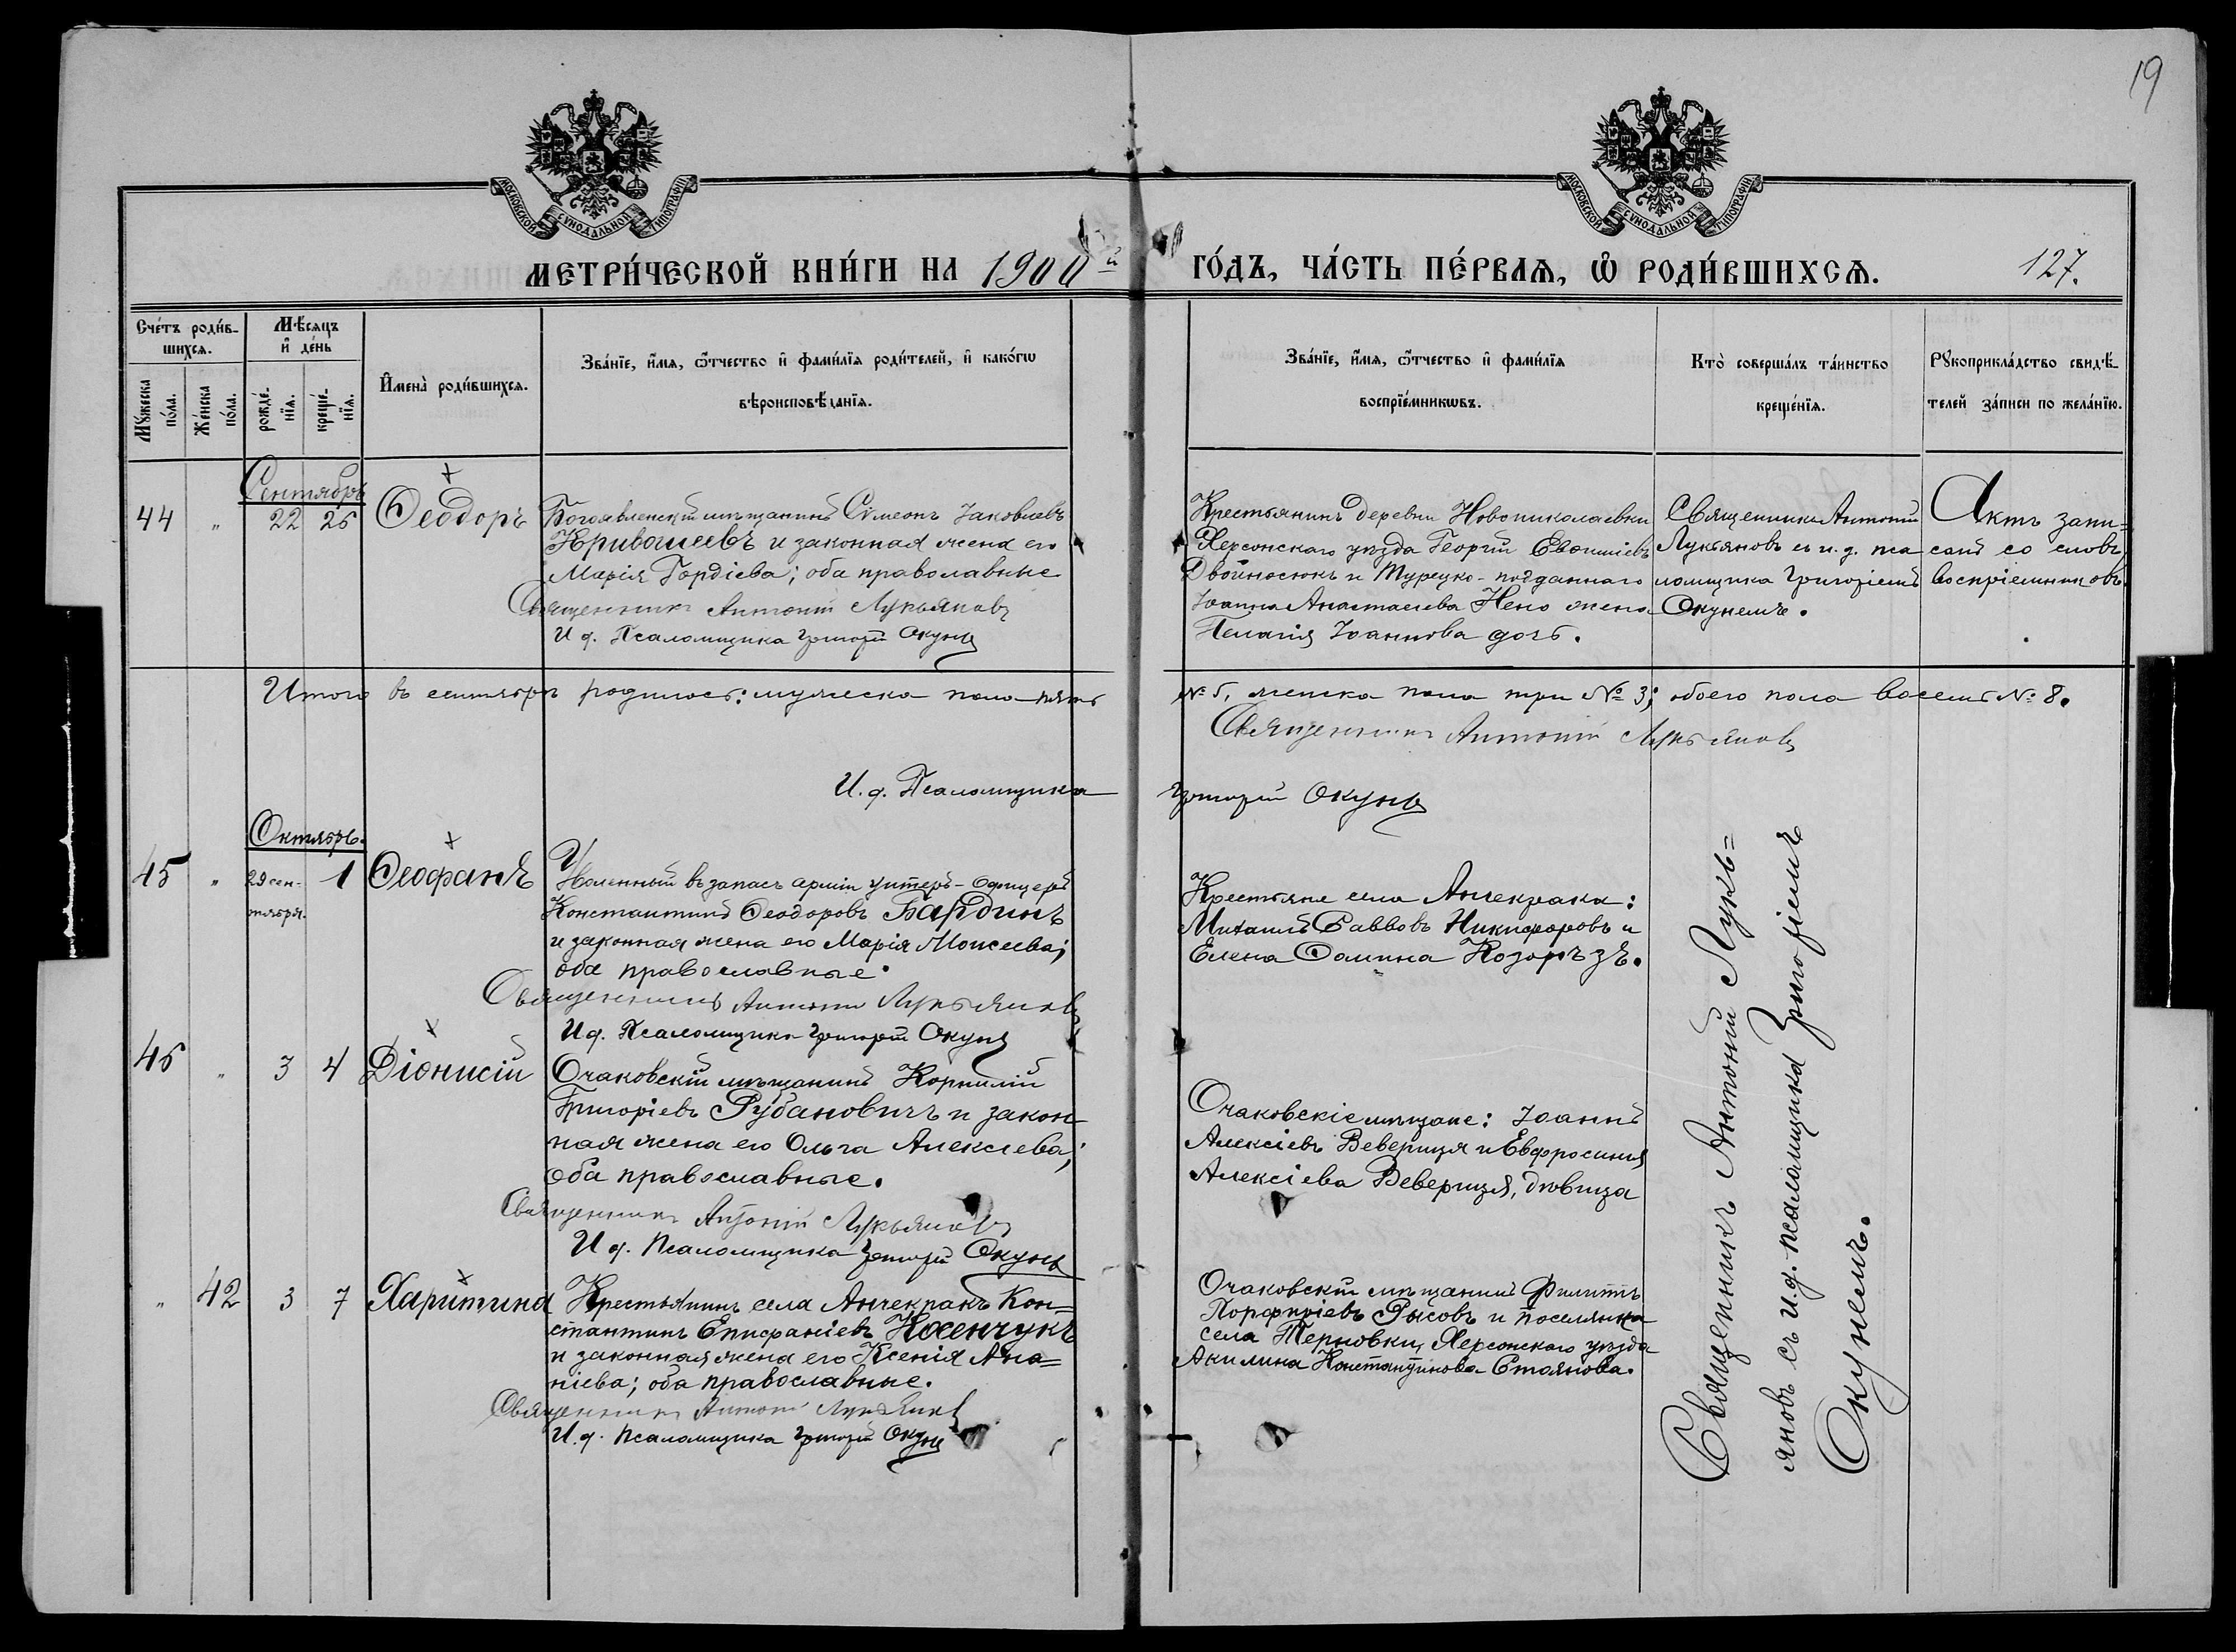 19
МОСКОВСКОЙ СѴНОДАЛЬНОЙ ТИПОГРАФІИ
МОСКОВСКОЙ СѴНОДАЛЬНОЙ ТИПОГРАФІИ
МЕТРИ́ЧЕСКОЙ КНИ́ГИ НА 1900й ГО́ДЪ, ЧА́СТЬ ПЕ́РВАѦ, Ѡ҆ РОДИ́ВШИХСѦ. 127.
Сче́тъ роди́в-
шихсѧ.
Мꙋ́жеска по́ла.
Же́нска по́ла.
Мѣ́сѧцъ
и҆ де́нь
рожде́-
нїѧ.
креще́-
нїѧ.
И҆мена̀ роди́вшихсѧ.
Зва́нїе, и҆́мѧ, ѻ҆́тчество и҆ фами́лїѧ роди́телей, и҆ како́гѡ
вѣроисповѣ́данїѧ.
Зва́нїе, и҆́мѧ, ѻ҆́тчество и҆ фами́лїѧ
воспрїе́мникѡвъ.
Кто̀ соверша́лъ та́инство
креще́нїѧ.
Рꙋкоприкла́дство свидѣ́-
телей за́писи по жела́нїю.
Сентябрь
44 „ 22 26 Ѳеодоръ
Богоявленскій мѣщанинъ Сѵмеонъ Іаковлевъ
Кривошеевъ и законная жена его
Марія Гордіева; оба православные
Священникъ Антоній Лукьяновъ
И д. Псаломщика Григорій Окунь
Крестьянинъ деревни Новониколаевки
Херсонскаго уѣзда Георгій
Двойносюкъ и Турецко-подданнаго
Іоанна Анастасіева Нено жена
Пелагія Іоаннова дочь.
Священникъ Антоній
Лукьяновъ съ и. д. пса
ломщика Григоріемъ
Окунемъ.
Актъ запи=
санъ со словъ
воспріемниковъ.
Итого въ сентябрѣ родилось: мужеска пола пять № 5, женска пола три № 3; обоего пола восемь № 8.
Священникъ Антоній Лукьяновъ
И. д. Псаломщика Григорій Окунь
Октябрь.
45 „ 29 сен-
тября. 1 Ѳеофанъ
Уволенный въ запасъ арміи унтеръ-офицеръ
Константинъ Ѳеодоровъ Бардинъ
и законная жена его Марія Моисеева;
оба православные.
Священникъ Антоній Лукьяновъ
И д. Псаломщика Григорій Окунь
Крестьяне села Анчекрака:
Михаилъ Саввовъ Никифоровъ и
Елена
46 „ 3 4 Діонисій
Очаковскій мѣщанинъ Корнилій
Григоріевъ Рубановичъ и закон
ная жена его Ольга Алексіева;
оба православные.
Священникъ Антоній Лукьяновъ
И д. Псаломщика Григорій Окунь
Очаковскіе мѣщане: Іоаннъ
Алексіевъ Веверица и Евфросинія
Алексіева Веверица, дѣвица
„ 42 3 7 Харитина
Крестьянинъ села Анчекракъ Кон=
стантинъ Епифаніевъ Косенчукъ
и законная жена его Ксенія Ана=
ніева; оба православные.
Священникъ Антоній Лукьяновъ
И. д. Псаломщика Григорій Окунь
Очаковскій мѣщанинъ Филиппъ
Порфиріевъ Рысовъ и поселянка
села Терновки, Херсонскаго уѣзда
Акилина Константинова Стоянова.
Священникъ Антоній Лукь=
яновъ съ и. д. псаломщика Григоріемъ
Окунемъ.